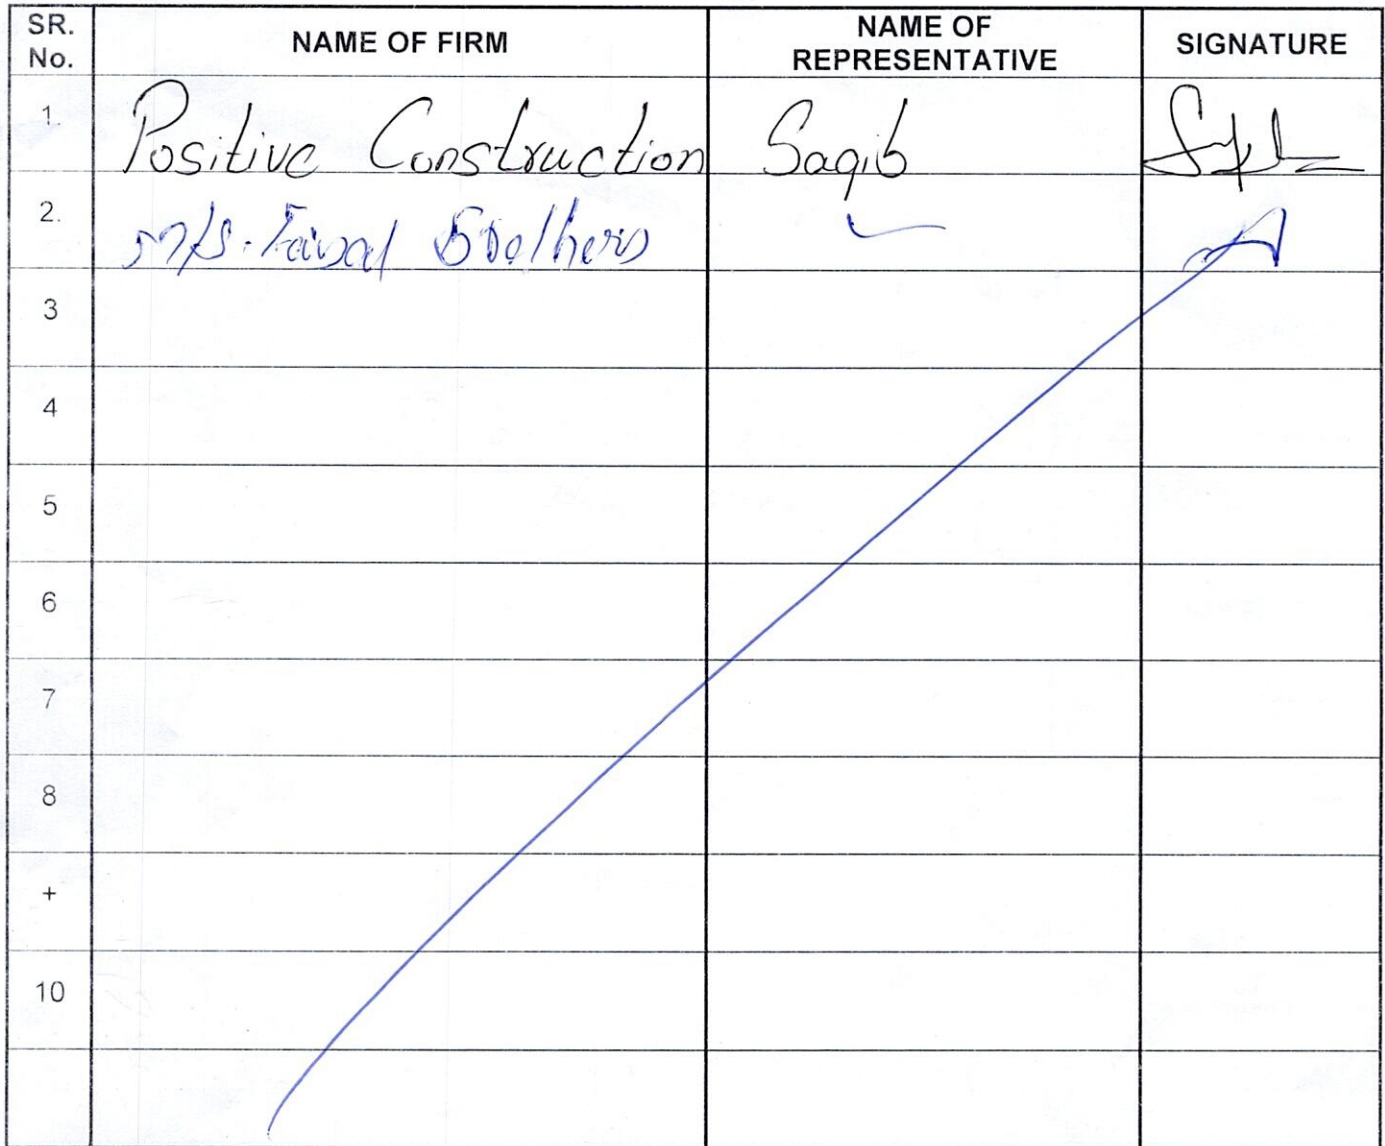 SR. No. NAME OF FIRM NAME OF REPRESENTATIVE SIGNATURE
1. Positive Construction Saqib
2. M/S. Faisal Brothers
3
4
5
6
7
8
+
10